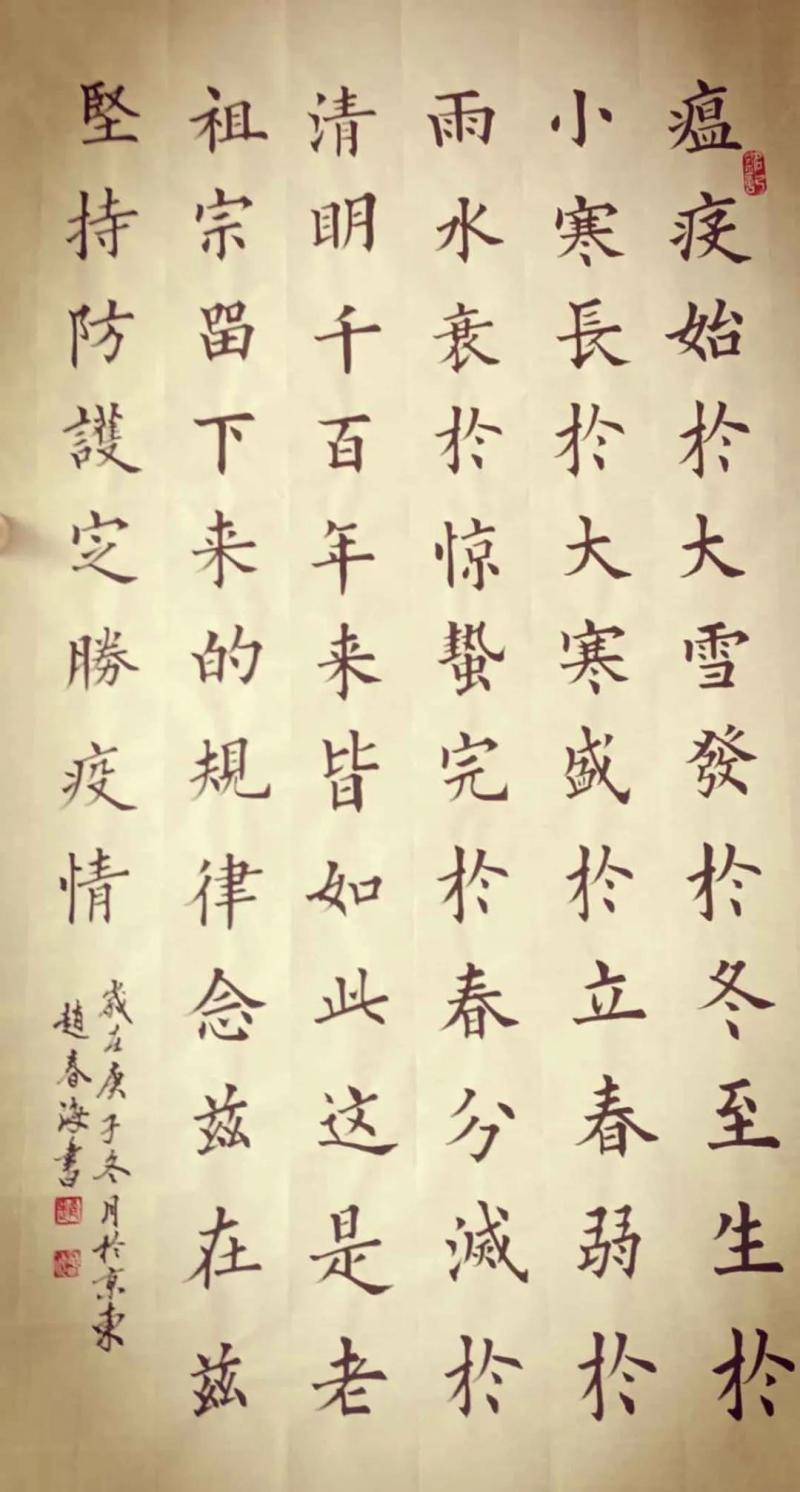 瘟疫始於大雪發於冬至生於
小寒長於大寒盛於立春弱於
雨水衰於惊蛰完於春分滅於
清明千百年来皆如此这是老
祖宗留下来的規律念兹在兹
堅持防護定勝疫情
歲在庚子冬月於京東
趙春海書